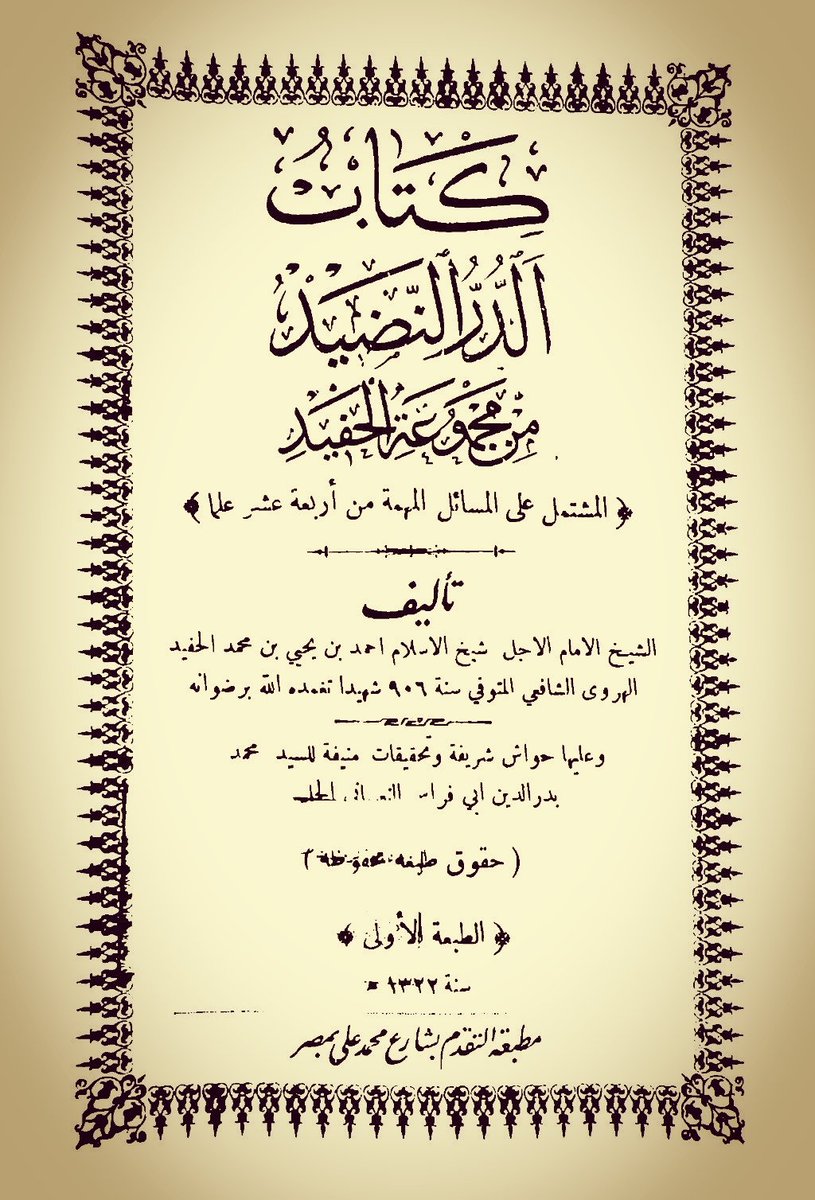 كِتَابُ
اَلدُّرُّ النَّضِيَدْ
مِنْ مَجْمُوعَةِ الْحَفِيَدِ
﴿ المشتمل على المسائل المهمة من أربعة عشر علما ﴾
تأليف
الشيخ الامام الاجل شيخ الاسلام احمد بن يحيي بن محمد الحفيد
الهروى الشافعي المتوفي سنة ٩٠٦ شهيدا تغمده الله برضوانه
وعليها حواش شريفة وتحقيقات منيفة للسيد محمد
بدرالدين ابي فراس
( حقوق طبعه محفوظه )
﴿ الطبعة الأولى ﴾
سنة ١٣٢٢ هـ
مطبعة التقدم بشارع محمد على بمصر